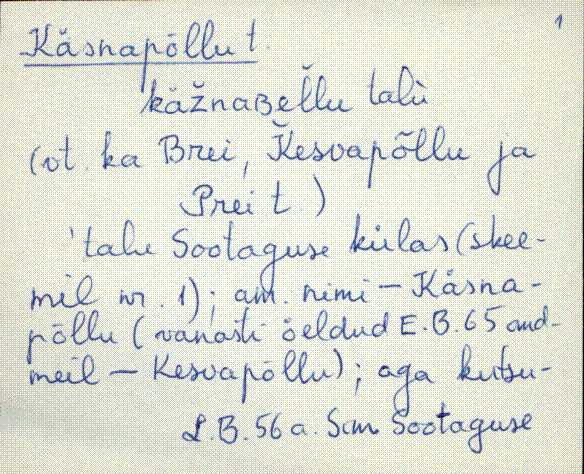 1
Käsnapõllu t.
käžnaʙeĺlu talù
(vt. ka Brei, Kesvapõllu ja
Prei t.)
talu Sootaguse külas (skee-
mil nr. 1); am. nimi – Käsna-
põllu (vanasti öeldud E.B. 65 and-
meil – Kesvapõllu); aga kutsu-
L.B. 56 a. Sim Sootaguse